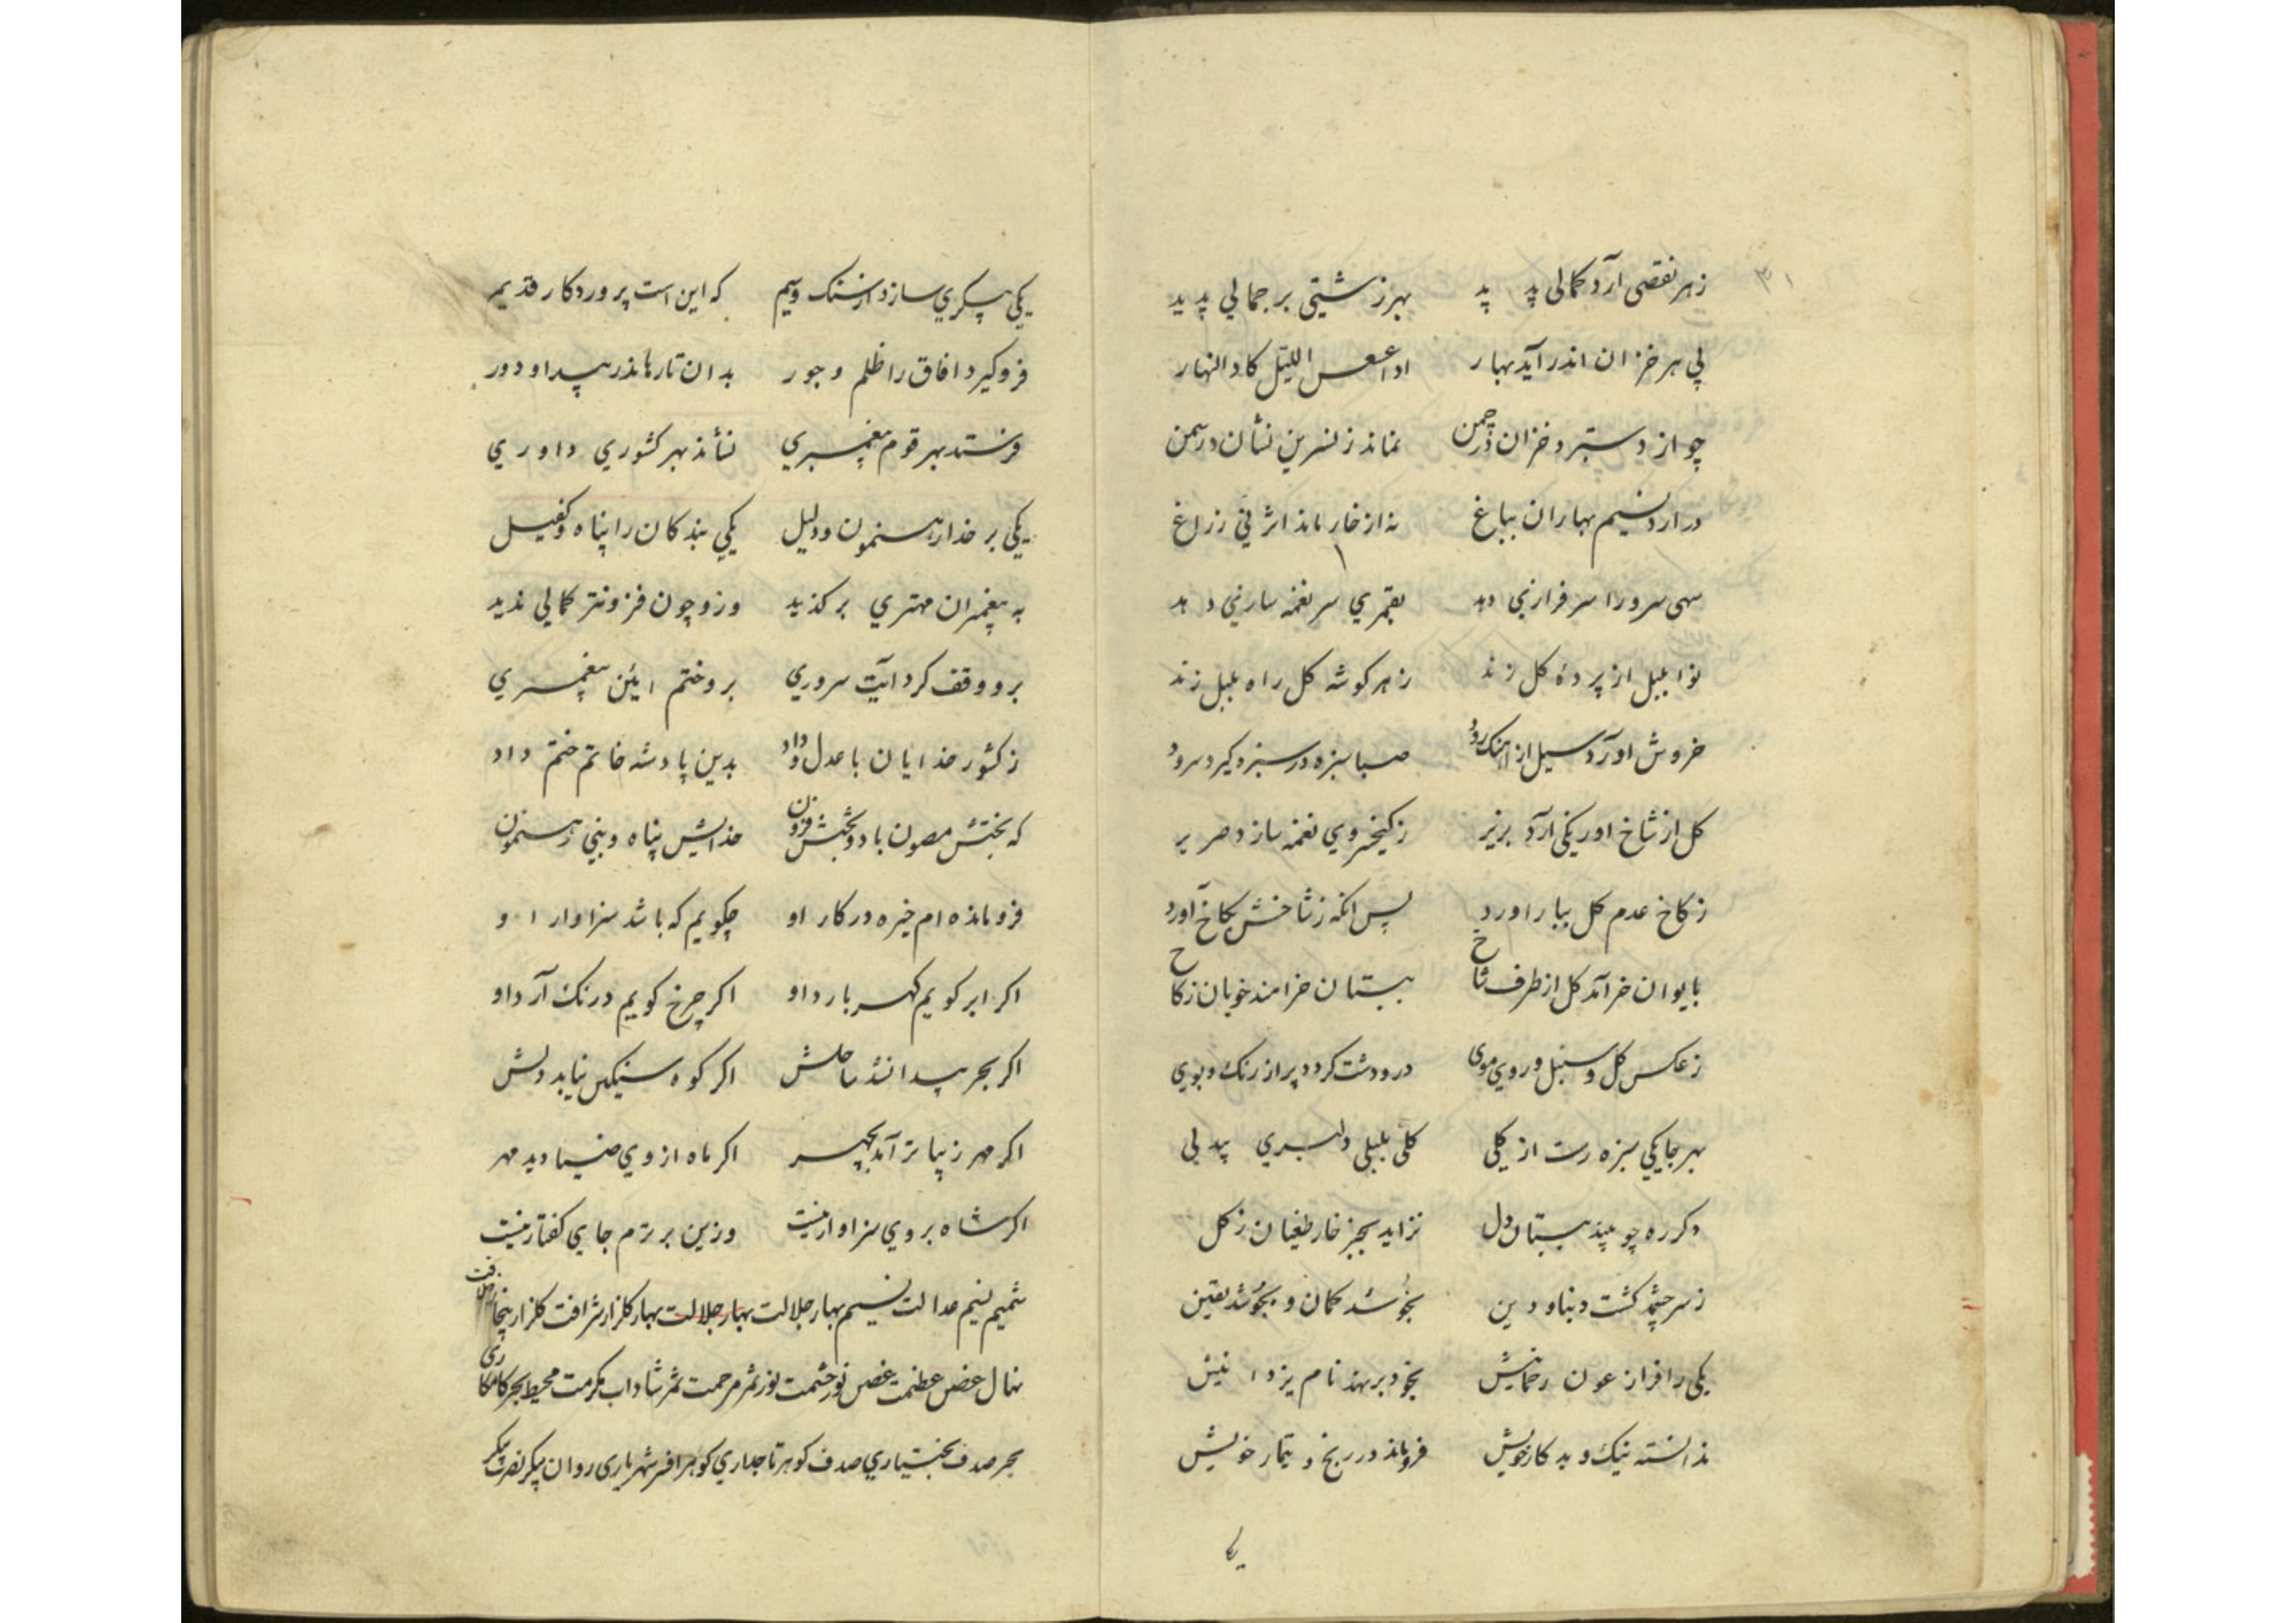 ۳۱
زهر نقصی آرد کمالی پدید بهر زشتیی بر جمالی پدید
پی هر خزان اندر آید بهار اذا عسعس اللیل کاد النهار
چو از دستبرد خزان در چمن نماند ز نسرین نشان در سمن
در ارد نسیم بهاران بباغ نه از خار ماند اثر نی ز زاغ
سهی سرو را سرفرازی دهد بقمری سر نغمه سازی دهد
نوا بلبل از پردهٔ کل زند زهر کوشه کل راه بلبل زند
خروش اورد سیل از اهنک رود صبا سبزه در سبزه کیرد سرود
کل از شاخ اورنکی آرد بزیر ز کیخسروی نغمه سازد صریر
ز کاخ عدم کل ببار اورد پس انکه ز شاخش بکاخ آورد
بایوان خرامد کل از طرف شاخ ببستان خرامند خوبان ز کاخ
ز عکس کل و سنبل و روی موی در و دشت کردد پر از رنک و بوی
بهر جا یکی سبزه رست از کلی کلی بلبلی دلبری بیدلی
دکر ره چو بیند ببستان دل نزاید بجز خار طغیان ز کل
ز سرچشمه کشت دنیا و دین بخوشد کمان و بجوشد یقین
یکی را فرازد عون رحمانیش بخود بر نهد نام یزدانیش
ندانسته نیک و بد کار خویش فروماند در رنج و تیمار خویش
یکی
یکی پیکری سازد از سنک و سیم که این است پروردکار قدیم
فرو کیرد افاق را ظلم و جور بدان تا رهاند ر بیداد و دور
فرستد بهر قوم پیغمبری نشاند بهر کشوری داوری
یکی بر خدا رهنمون و دلیل یکی بندکان را پناه و کفیل
به پیغمبران مهتری برکزید وزو چون فزونتر کمالی ندید
برو وقف کرد آیت سروری برو ختم ایین پیغمبری
ز کشور خدایان با عدل و داد بدین پادشه خاتم ختم داد
که بختش مصون باد و بخشش فزون خدایش پناه و نبی رهنمون
فرو مانده ام خیره در کار او چکویم که باشد سزاوار او
اکر ابر کویم کهر بارد او اکر چرخ کویم درنک آرد او
اکر بحر پیدا نشد ساحلش اکر کوه سنکین نیابد دلش
اکر مهر زیباتر آمد بچهر اکر ماه از وی ضیا دید مهر
اکر شاه بر وی سزاوار نیست وزین برترم جای کفتار نیست
شمیم نسیم عدالت نسیم بهار جلالت بهار جلالت بهار کلزار شرافت کلزار
نهال غصن عظمت غصن نور حشمت نور ثمر مرحمت ثمر شاداب مکرمت محیط بحر کامکاری
بحر صدف بختیاری صدف کوهر تاجداری کوهر افسر شهریاری روان پیکر نصرت پیکر